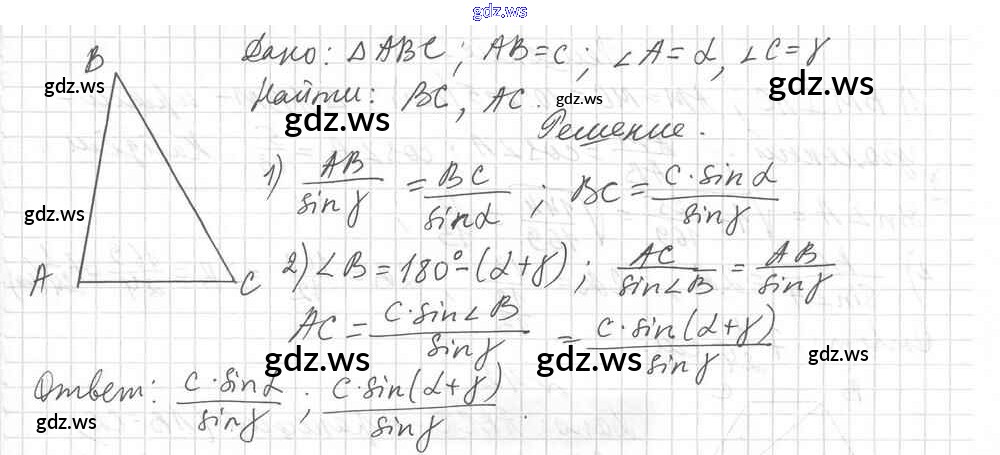 gdz.ws
Дано: △ABC; AB=c; ∠A=α, ∠C=γ
B
gdz.ws
gdz.ws
Найти: BC, AC.
gdz.ws
gdz.ws
Решение.
1) AB/sinγ = BC/sinα ; BC = c·sinα/sinγ
gdz.ws
gdz.ws
A C
2) ∠B = 180° - (α+γ) ; AC/sin∠B = AB/sinγ
AC = c·sin∠B/sinγ = c·sin(α+γ)/sinγ
gdz.ws
gdz.ws
gdz.ws
Ответ: c·sinα/sinγ ; c·sin(α+γ)/sinγ .
gdz.ws